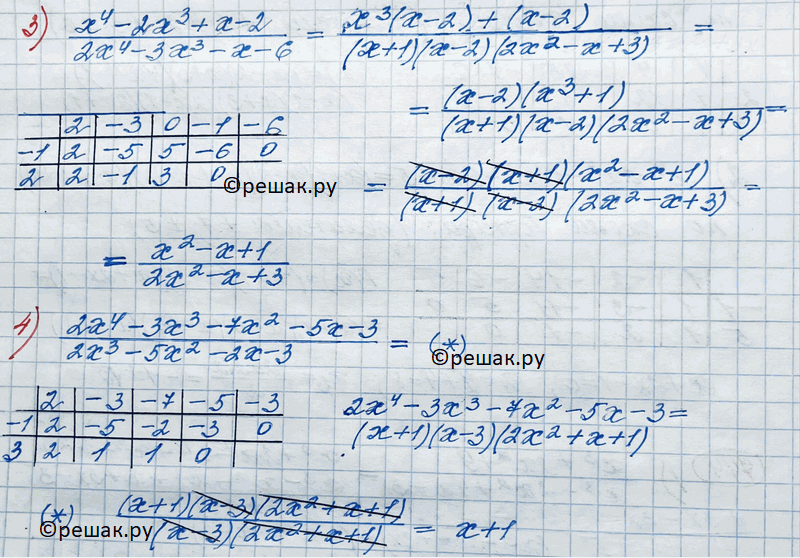 3) (x⁴-2x³+x-2)/(2x⁴-3x³-x-6) = (x³(x-2)+(x-2))/((x+1)(x-2)(2x²-x+3)) =
= ((x-2)(x³+1))/((x+1)(x-2)(2x²-x+3)) =
2 -3 0 -1 -6
-1 2 -5 5 -6 0
2 2 -1 3 0
©решак.ру
= ((x-2)(x+1)(x²-x+1))/((x+1)(x-2)(2x²-x+3)) =
= (x²-x+1)/(2x²-x+3)
4) (2x⁴-3x³-7x²-5x-3)/(2x³-5x²-2x-3) = (*)
©решак.ру
2 -3 -7 -5 -3
-1 2 -5 -2 -3 0
3 2 1 1 0
2x⁴-3x³-7x²-5x-3=
(x+1)(x-3)(2x²+x+1)
(*) ((x+1)(x-3)(2x²+x+1))/((x-3)(2x²+x+1)) = x+1
©решак.ру